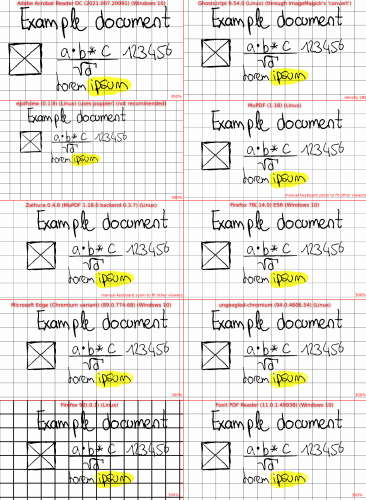 Adobe Acrobat Reader DC (2021.007.20091) (Windows 10)
Example document
a•b*c 123456
√a
Lorem ipsum
300%
Ghostscript 9.54.0 (Linux) (through ImageMagick's 'convert')
Example document
a•b*c 123456
√a
Lorem ipsum
density 300
epdfview (0.1.8) (Linux) (uses poppler) (not recommended)
Example document
a•b*c 123456
√a
Lorem ipsum
300%
MuPDF (1.18) (Linux)
Example document
a•b*c 123456
√a
Lorem ipsum
manual keyboard zoom to fit other viewers
Zathura 0.4.8 (MuPDF 1.18.0 backend 0.3.7) (Linux)
Example document
a•b*c 123456
√a
Lorem ipsum
manual keyboard zoom to fit other viewers
Firefox 78(.14.0) ESR (Windows 10)
Example document
a•b*c 123456
√a
Lorem ipsum
300%
Microsoft Edge (Chromium variant) (89.0.774.68) (Windows 10)
Example document
a•b*c 123456
√a
Lorem ipsum
300%
ungoogled-chromium (94.0.4606.54) (Linux)
Example document
a•b*c 123456
√a
Lorem ipsum
300%
Firefox 92(.0.1) (Linux)
Example document
a•b*c 123456
√a
Lorem ipsum
300%
Foxit PDF Reader (11.0.1.49938) (Windows 10)
Example document
a•b*c 123456
√a
Lorem ipsum
300%